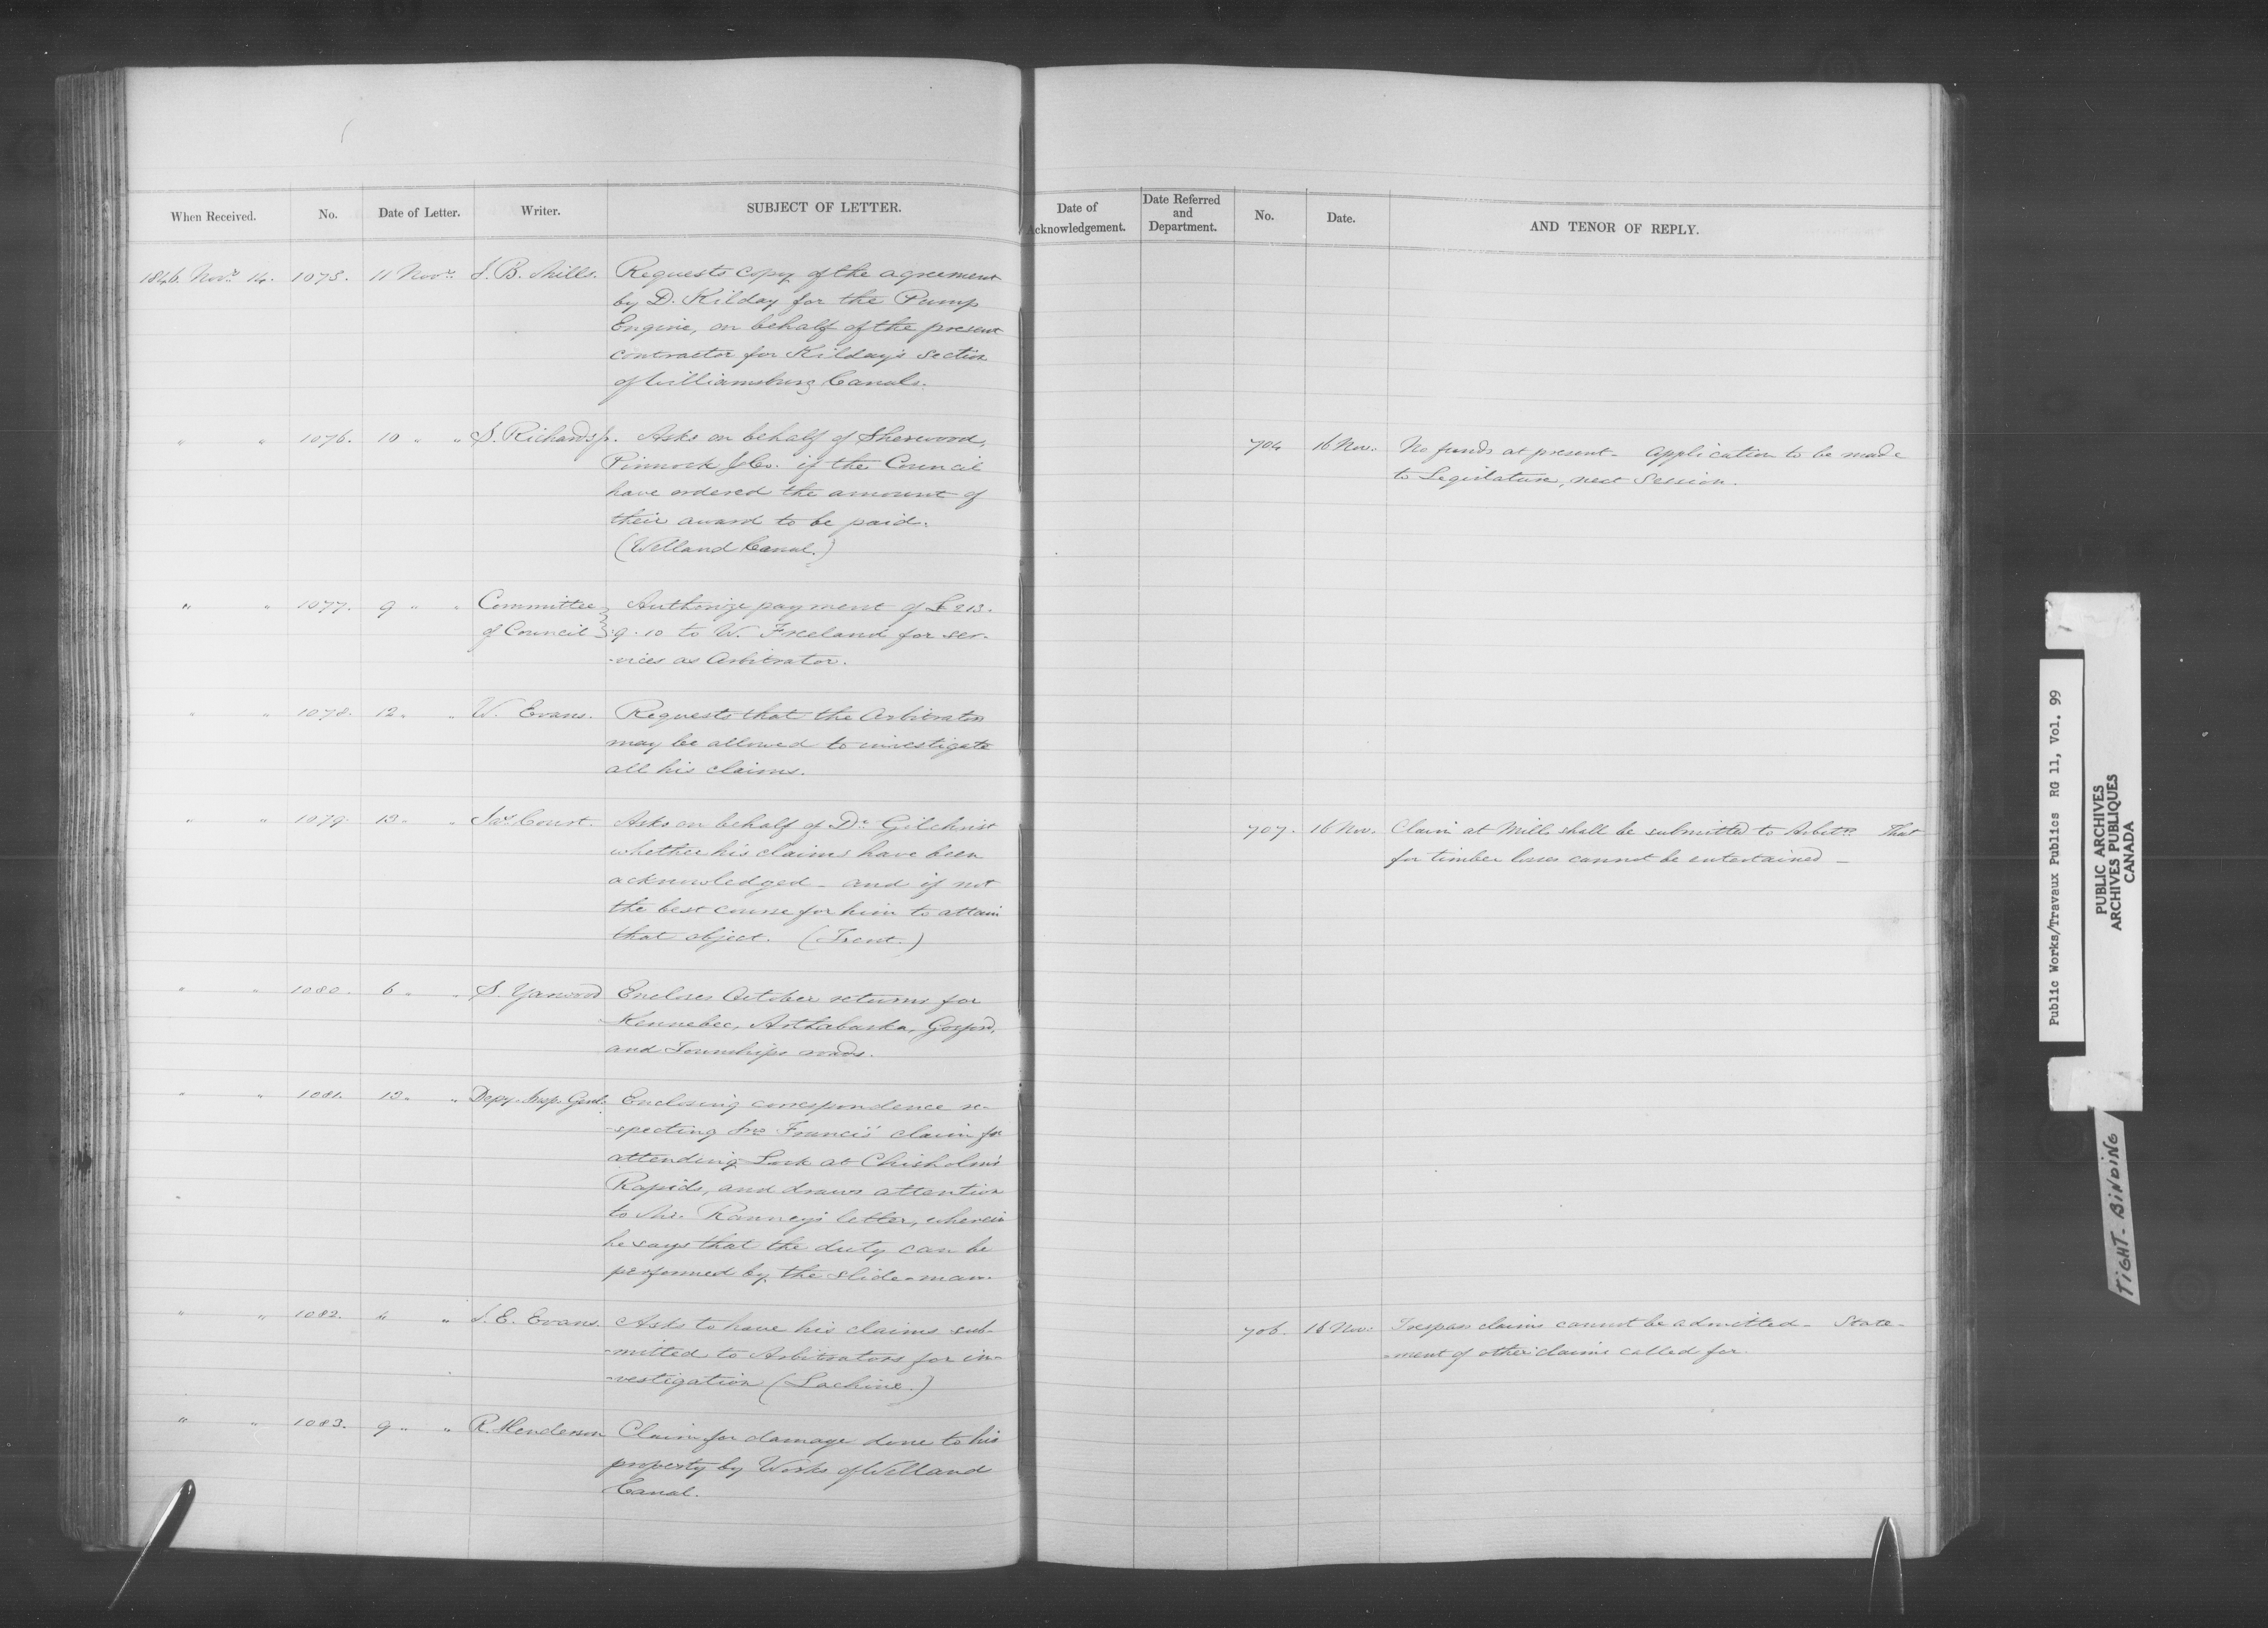 When Received. No. Date of Letter. Writer. SUBJECT OF LETTER.
1846. Novr. 14. 1075. 11 Novr. J. B. Mills. Requests copy of the agreement
by D. Kilday for the Pump
Engine, on behalf of the present
contractor for Kilday's section
of Williamsburg Canals.
" " 1076. 10 " " S. Richards jr. Asks on behalf of Sherwood,
Pinnock & Co. if the Council
have ordered the amount of
their award to be paid.
(Welland Canal.)
" " 1077. 9 " " Committee Authorize payment of £213.
of Council } 9.10 to W. Freeland for ser-
-vices as Arbitrator.
" " 1078. 12 " " W. Evans. Requests that the Arbitrators
may be allowed to investigate
all his claims.
" " 1079. 13 " " Jas. Court. Asks on behalf of Dr. Gilchrist
whether his claims have been
acknowledged - and if not
the best course for him to attain
that object. (Trent.)
" " 1080. 6 " " S. Yarwood Encloses October returns for
Kennebec, Arthabaska, Gosford,
and Townships roads.
" " 1081. 13 " " Depy. Insp. Genl. Enclosing correspondence re-
-specting Jno Francis' claim for
attending Lock at Chisholm's
Rapids, and draws attention
to Mr. Ranney's letter, wherein
he says that the duty can be
performed by the slide-man.
" " 1082. " " J. E. Evans. Asks to have his claims sub-
-mitted to Arbitrators for in-
-vestigation (Lachine.)
" " 1083. 9 " " R. Henderson Claim for damage done to his
property by Works of Welland
Canal.
Date of Acknowledgement. Date Referred and Department. No. Date. AND TENOR OF REPLY.
704 16 Nov. No funds at present - Application to be made
to Legislature, next Session.
707. 16 Nov. Claim at Mills shall be submitted to Arbitrs. That
for timber losses cannot be entertained -
706. 16 Nov. Trespass claims cannot be admitted - State-
-ment of other claims called for.
Public Works/Travaux Publics RG 11, Vol. 99
PUBLIC ARCHIVES
ARCHIVES PUBLIQUES
CANADA
TIGHT-BINDING